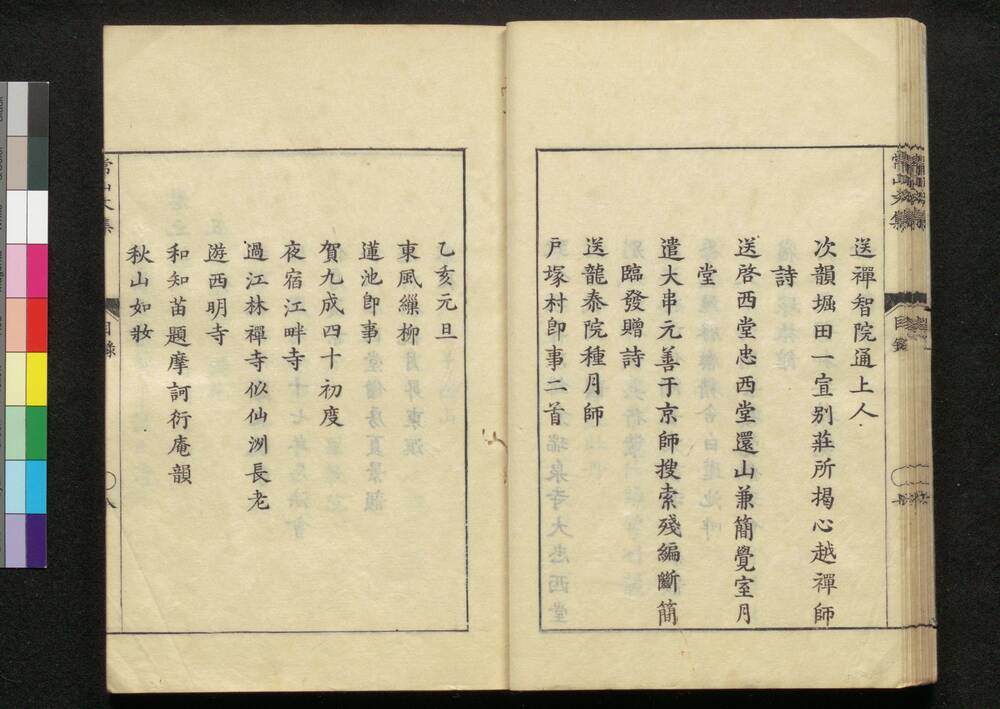 送禪智院通上人
次韻堀田一宜别莊所揭心越禪師
詩
送啓西堂忠西堂還山兼簡覺室月
堂
遣大串元善于京師搜索殘編斷簡
臨發贈詩
送龍泰院種月師
戸塚村卽事二首
常山文集
目錄
乙亥元旦
東風繅柳
蓮池卽事
賀九成四十初度
夜宿江畔寺
過江林禪寺似仙洲長老
遊西明寺
和知苗題摩訶衍庵韻
秋山如妝
目錄